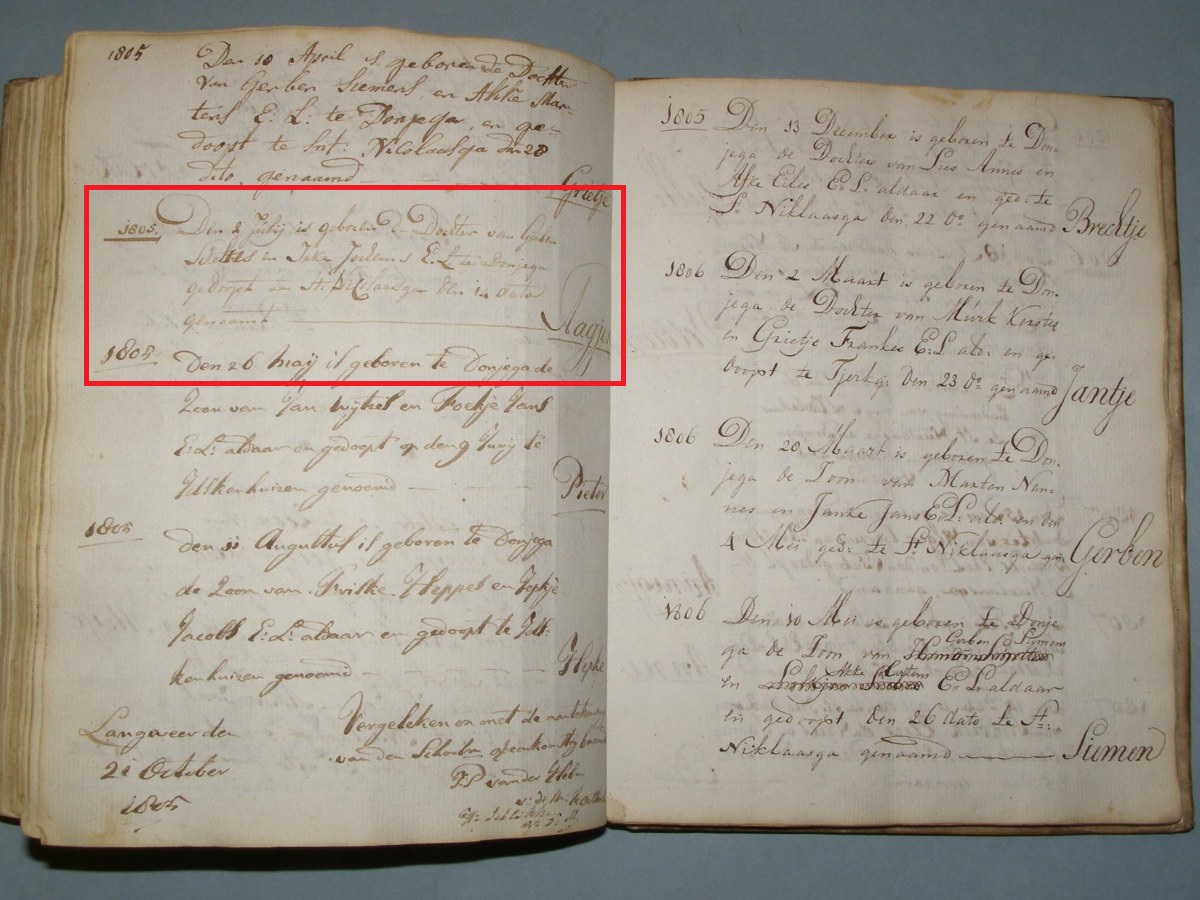 1805
Den 10 April is geboren de Dochter
van Gerben Siemens, en Akke Mar-
tens E: L: te Donjega, en ge-
doopt te Snt: Nicolaasga den 28
dito, genaamd
Grietje
1805.
Den 2 Julij is geboren de Dochter van
Sietses en Jeke E: L: te Donjega
gedoopt in St. Nicolaasga den 14 dato
genaamt
Aagje
1805
Den 26 Maij is geboren te Donjega de
Zoon van Jan Wijtzes en Fockje Jans
E: L: aldaar en gedoopt op den 9 Junij te
Idskenhuizen genoemd
Pieter
1805
den 11 Augustus is geboren te Donjega
de Zoon van Heppes en
Jacobs E: L: aldaar en gedoopt te Ids-
kenhuizen genoemd
Hepke
Langweer den
21 October
1805
Vergeleken en met de
van den
van der
1805
Den 13 December is geboren te Don-
jega de Dochter van Sies Annes en
Aske Eiles E: L: aldaar en gedo te
St Niklaasga den 22 do genaamd
Brechtje
1806
Den 2 Maart is geboren te Don-
jega de Dochter van Murk Kerstes
en Grietje Frankes E: L ald: en ge-
doopt te Tjerkg: den 23 do genaamd
Jantje
1806
Den 28 Maart is geboren te Don-
jega de Zoon van Marten Nan-
nes en Janke Jans E: L: ald: en den
4 Mei ged: te St Niklaasga
Gerben
1806
Den 10 Mei is geboren te Donje
Gerben Siemens
ga de Zoon van
Akke Martens
en E: L aldaar
en gedoopt den 26 dato te St:
Niklaasga genaamd
Siemen